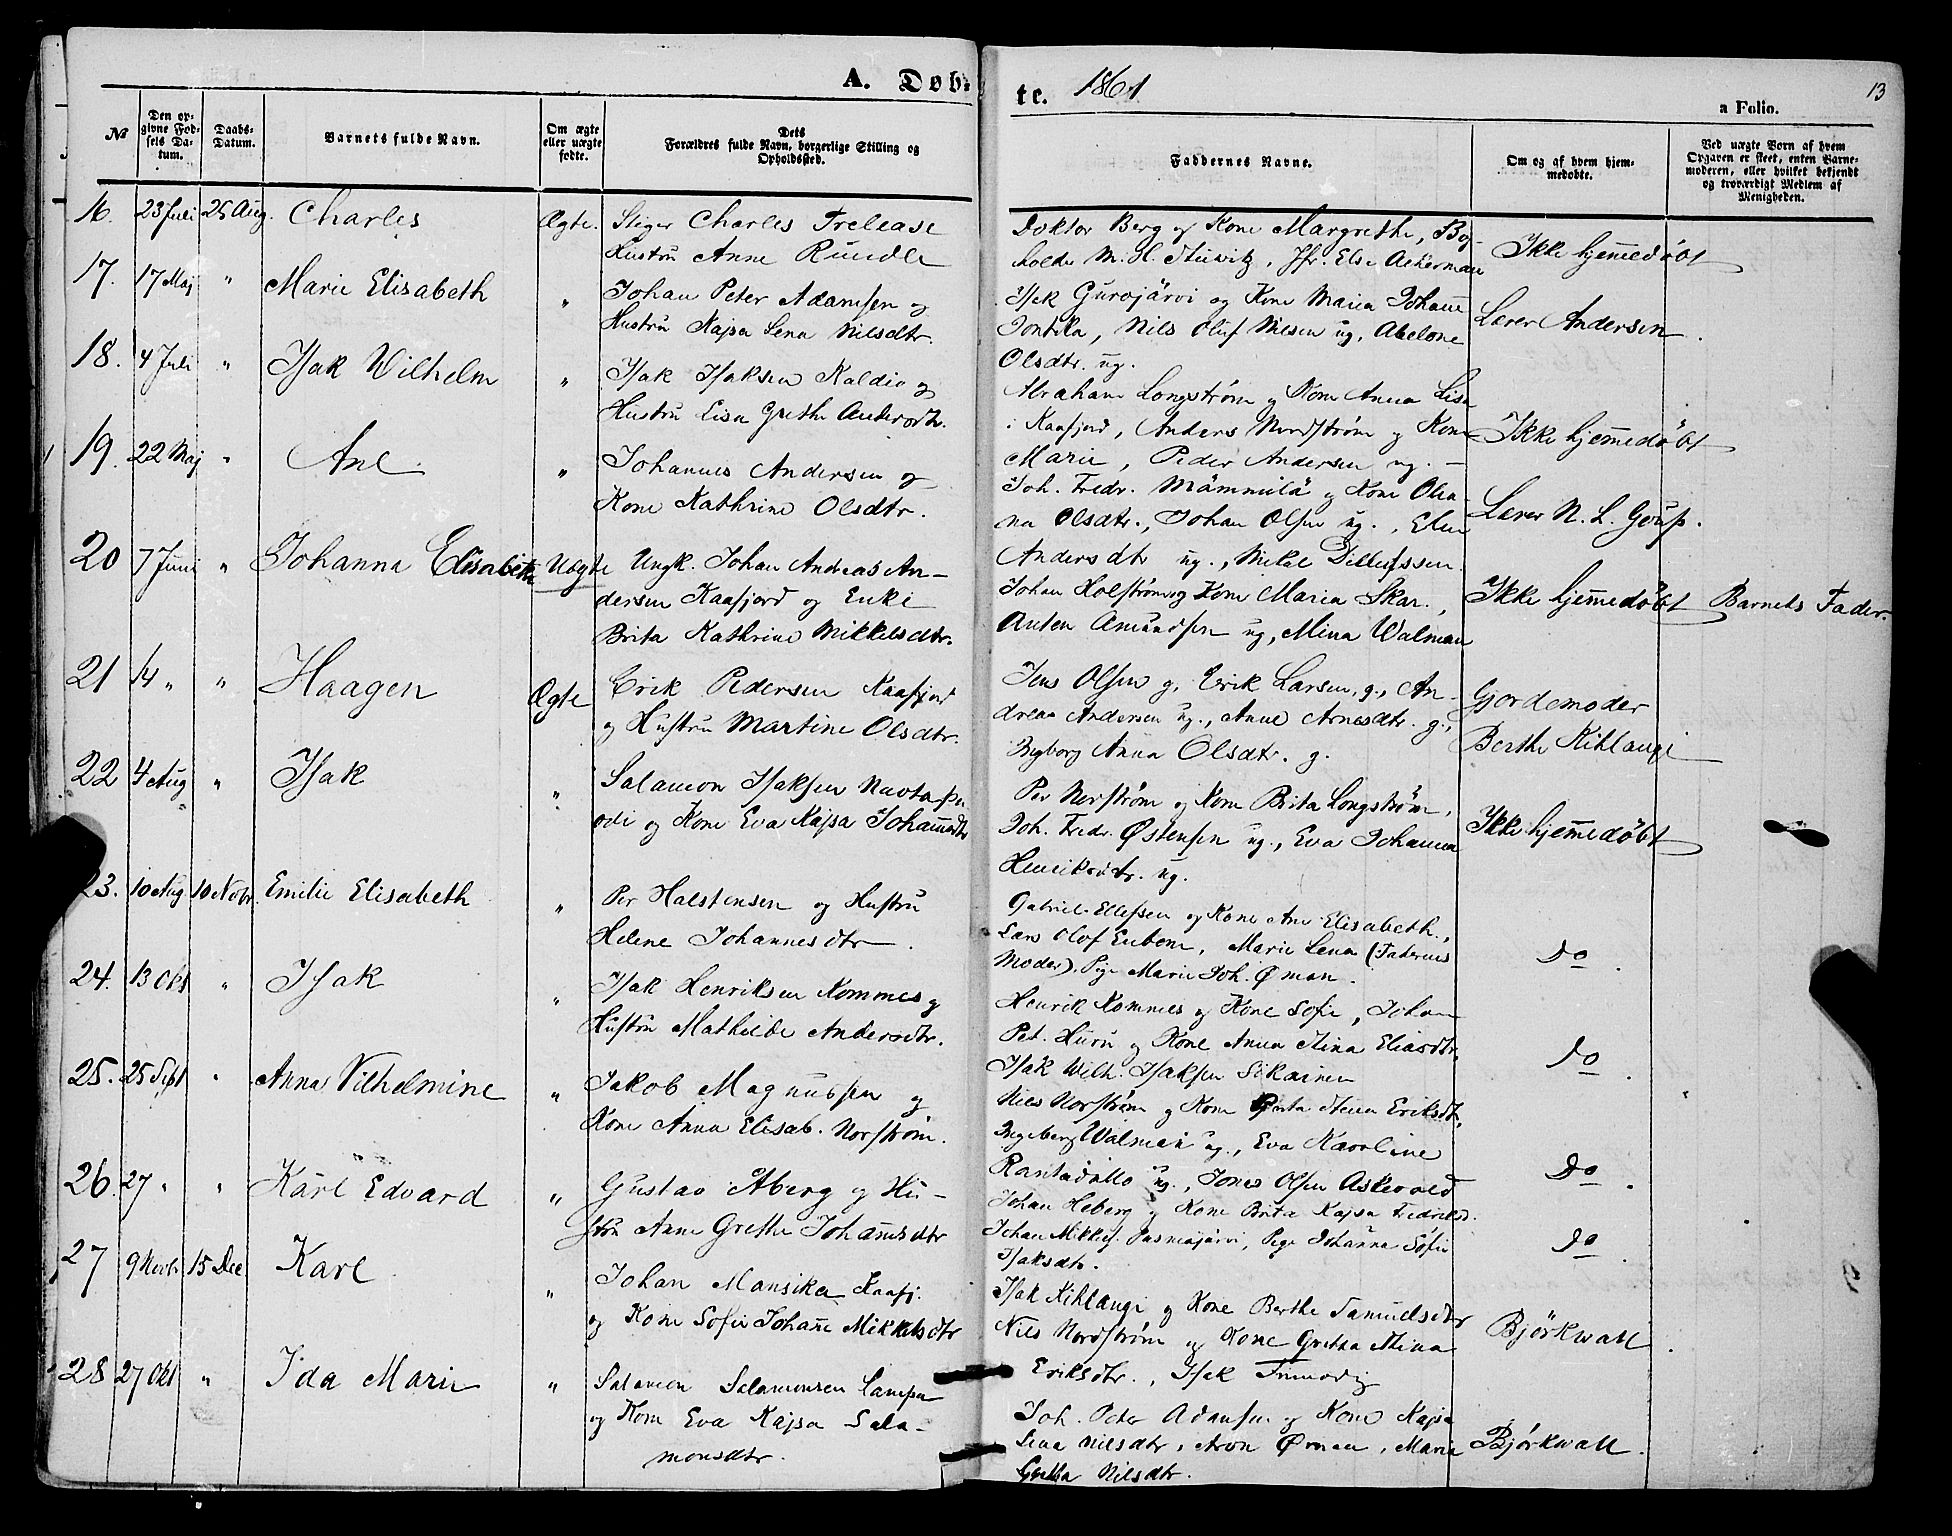 A. Døb-
te. 1861
13
a Folio.
№
Den op-
givne Fød-
sels Da-
tum.
Daabs-
Datum.
Barnets fulde Navn.
Om ægte
eller uægte
fødte.
Dets
Forældres fulde Navn, borgerlige Stilling og
Opholdssted.
Faddernes Navne.
Om og af hvem hjem-
medøbte.
Ved uægte Børn af hvem
Opgaven er skeet, enten Barne-
moderen, eller hvilket bekjendt
og troværdigt Medlem af
Menigheden.
16. 23 Juli 25 Aug. Charles Ægte. Stiger Charles Trelease
Hustru Anne Rundle
Doktor Berg og Kone Margrethe, Bog-
holder M. H. Stuwitz, Jfr. Else Ackerman
Ikke hjemedöbt
17. 17 Maj " Marie Elisabeth " Johan Peter Adamsen og
Hustru Kajsa Lena Nilsdtr.
Isak Gurojärvi og Kone Maria Johanne
Nils Oluf Nilsen ug, Abelone
Olsdtr. ug.
Lærer Andersen.
18. 4 Juli " Isak Wilhelm " Isak Isaksen Kaldio og
Hustru Lisa Grethe Andersdtr.
Abraham Longstrøm og Kone Anna Lisa
i Kaafjord, Anders Nordstrøm og Kone
Marie, Peder Andersen ug. -
Ikke hjemedöbt
19. 22 Maj " Ane " Johannes Andersen og
Kone Kathrine Olsdtr.
Joh. Fredr. Mämmilä og Kone Olea-
na Olsdtr., Johan Olsen ug., Elen
Andersdtr ug., Mikel Dillefssen.
Lærer N. L. Gouss.
20 7 Juni " Johanna Elisabeth Uægte Ungk. Johan Andreas An-
dersen Kaafjord og Enke
Brita Kathrine Mikkelsdtr.
Johan Holstrøm og Kone Maria Skar.,
Anten Amundsen ug, Mina Walman
Ikke hjemedöbt Barnets Fader.
21 14 " " Haagen Ægte Erik Pedersen Kaafjord
og Hustru Martine Olsdtr.
Jens Olsen g, Erik Larsen, g., An-
dreas Andersen ug., Anne Arnesdtr. g.,
Ingborg Anna Olsdtr. g.
Gjordemoder
Berthe Kihlangi
22 4 Aug " Isak " Salamon Isaksen
og Kone Eva Kajsa Johansdtr
Per Norstrøm og Kone Brita Longstrøm,
Joh. Fredr. Østensen ug., Eva Johanna
Henriksdtr. ug.
Ikke hjemedöbt
23. 10 Aug 10 Novbr. Emilie Elisabeth " Per Halstensen og Hustru
Helene Johannesdtr.
Gabriel Ellefsen og Kone Ane Elisabeth,
Lars Olof Enbom, Marie Lena (Faderens
Moder). Pige Marie Joh. Øman.
Do.
24. 13 Okt " Isak " Isak Henriksen Kommes og
Hustru Mathilde Andersdtr.
Henrik Kommes og Kone Sofie, Johan
Pet. Huru og Kone Anna Stina Eliasdtr.
Isak Wilh. Isaksen Sikainen
Do.
25. 25 Sept " Anna Vilhelmine " Jakob Magnussen og
Kone Anna Elisab. Norstrøm.
Nils Norstrøm og Kone Greta Stina Eriksdtr.
Ingeborg Walman ug., Eva Karoline
Rantadillo ug., Jones Olsen Askevold
Do.
26. 27 " " Karl Edvard " Gustav Aberg og Hu-
stru Anne Grethe Johansdtr
Johan Heberg og Kone Brita Kajsa Fredriksd.
Johan Mikkels. Pasmajärvi, Pige Johanna Sofie
Isaksdtr.
Do.
27 9 Novbr 15 Dec Karl " Johan Mansika Kaafj.
og Kone Sofie Johane Mikkelsdtr
Isak Kihlangi og Kone Berthe Samuelsdtr
Nils Nordstrøm og Kone Gretha Stina
Eriksdtr., Isak
Björkwall.
28 27 Okt " Ida Marie " Salamon Salamonsen Lampa
og Kone Eva Kajsa Sala-
monsdtr.
Joh. Peter Adamsen og Kone Kajsa
Lena Nilsdtr, Aron Øman, Maria
Greta Nilsdtr.
Bjørkwall.